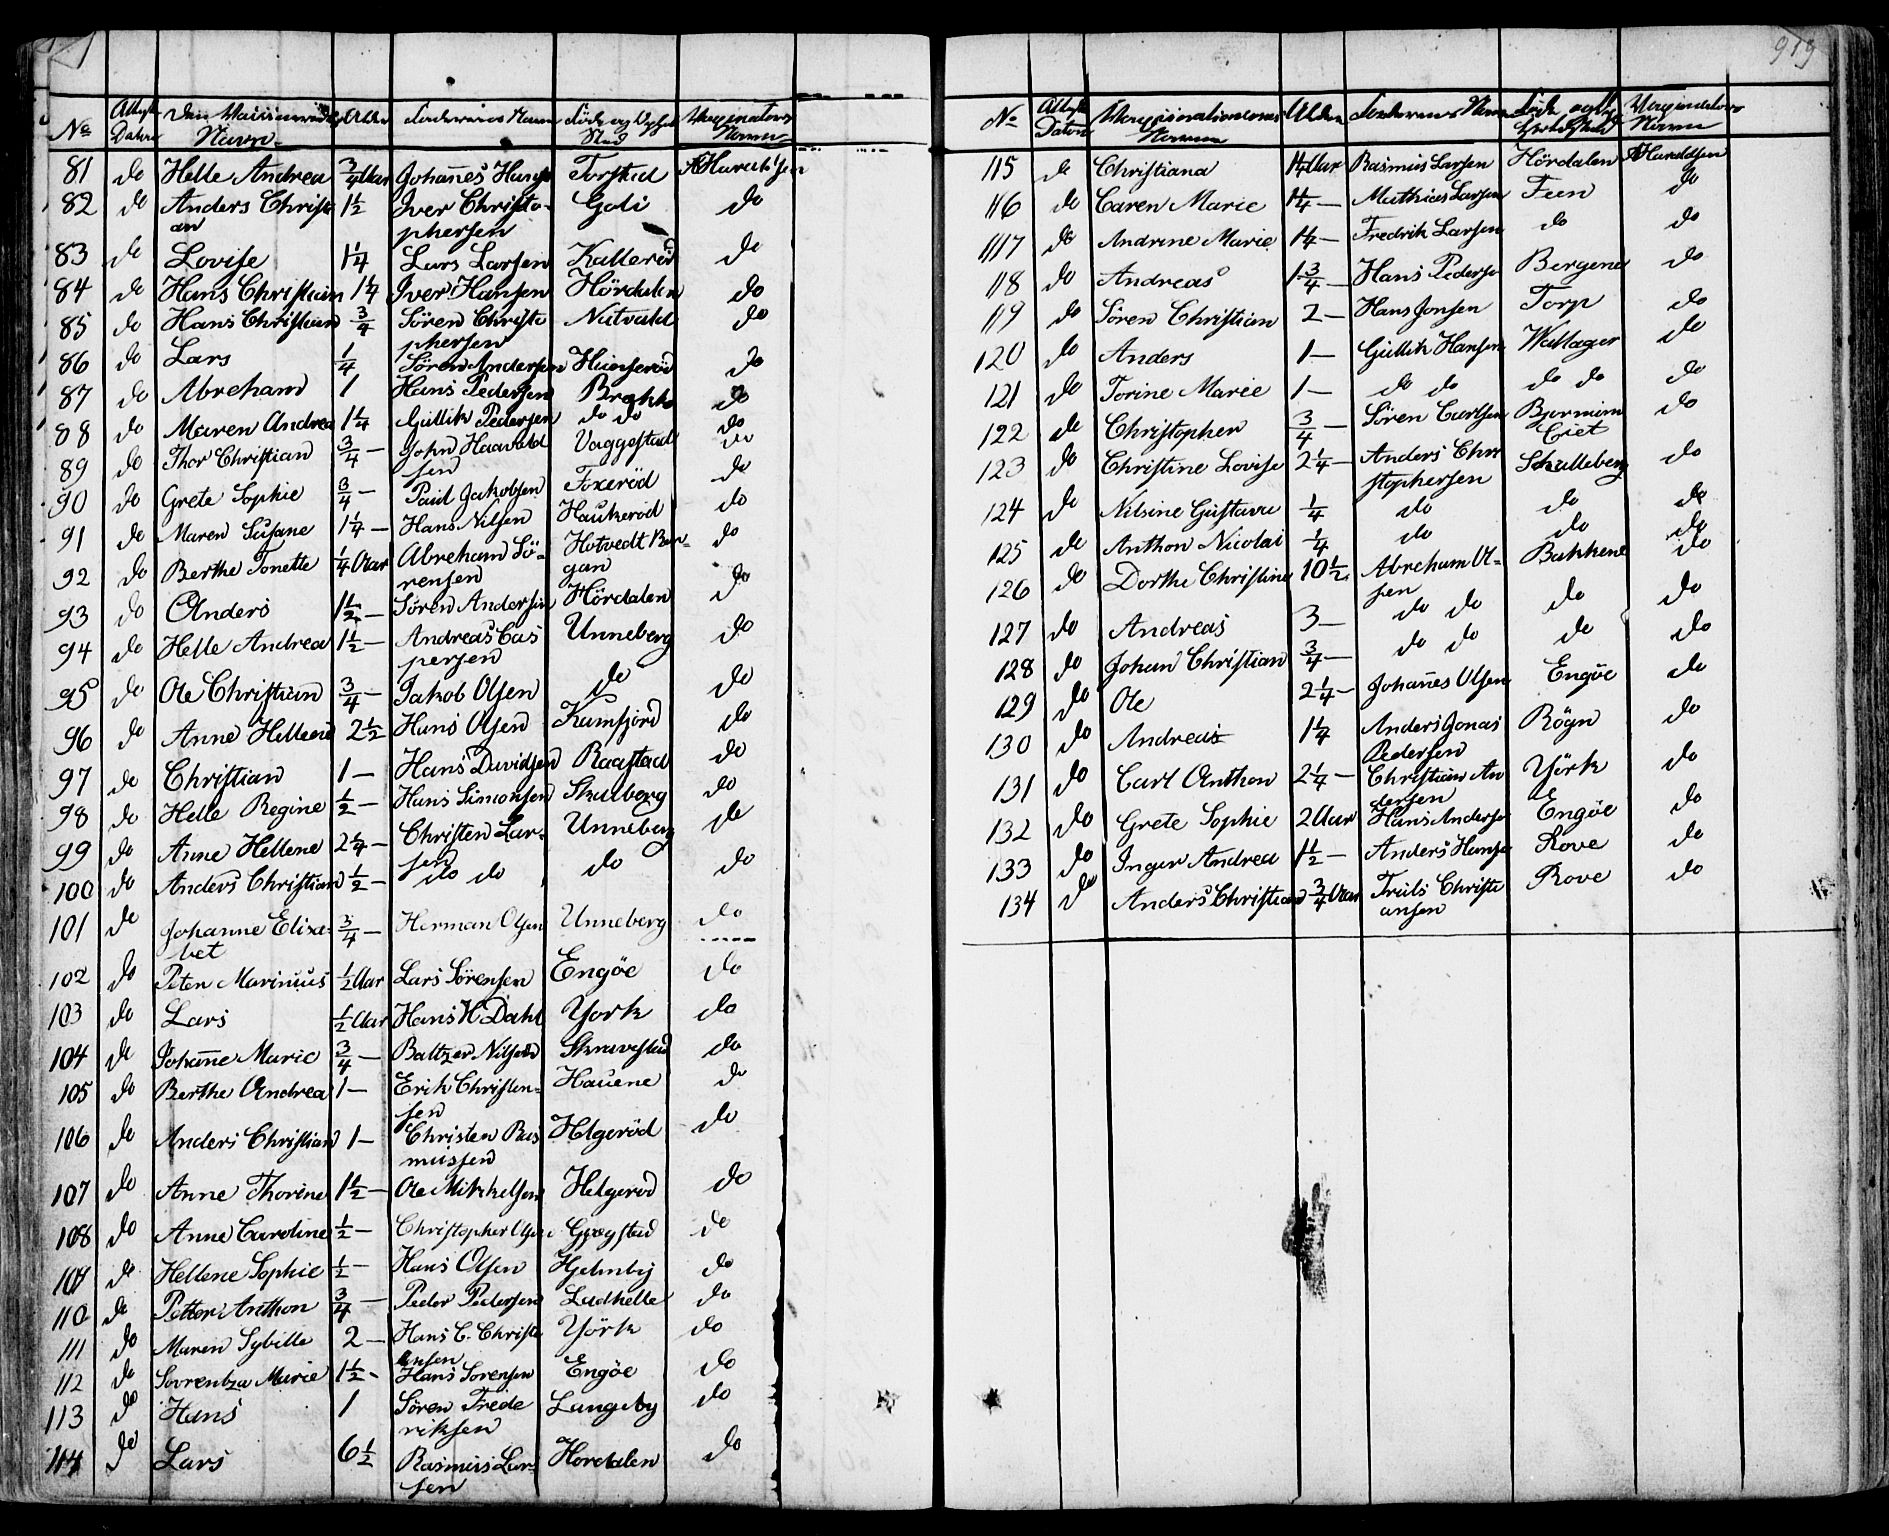 No Attest Datum Den Vaccineredes Navn Alder Forderenes Navn Föde og Opholds Sted Vaccinateurs Navn
81 do Helle Andrea 3/4 Aar Johan̄es Hans Torstad AHaraldsen
82 do Anders Christi 1 1/2 Iver Christo- Goli do
an phersen
83 do Lovise 1 1/4 Lars Larsen Kallerød do
84 do Hans Christian 1 1/4 Iver Hansen Hördalen do
85 do Hans Christian 3/4 Sören Christo Natvald do
phersen
86 do Lars 1/4 Sören Andersen Huiserød do
87 do Abreham 1 Hans Pedersen Brekke do
88 do Maren Andrea 1 1/4 Gullik Pedersen do do do
89 do Thor Christian 3/4 — John Haavald Vaggestad do
sen
90 do Grete Sophie 3/4 — Paul Jakobsen Foxeröd do
91 do Maren Susane 1 1/4 — Hans Nilsen Haukeröd do
92 do Berthe Tonette 1/4 Aar Abreham Sö- Hotvedt Ber- do
rensen gan
93 do Anders 1 1/2 — Sören Andersen Hördalen do
94 do Helle Andrea 1 1/2 — Andreas Cas Unneberg do
persen
95 do Ole Christian 3/4 — Jakob Olsen do do
96 do Anne Hellene 2 1/2 Hans Olsen Kamfjord do
97 do Christian 1 — Hans Davidsen Raastad do
98 do Helle Regine 1/2 — Hans Simonsen Skalberg do
99 do Anne Hellene 2 1/4 — Christen Lar- Unneberg do
sen
100 do Anders Christian 1/2 — do do do do
101 do Johanne Elisa- 3/4 — Herman Olsen Unneberg do
bet
102 do Peter Marinius 1/2 Aar Lars Sörensen Engöe do
103 do Lars 1/2 Aar Hans H Dahl York do
104 do Johan̄e Marie 3/4 — Baltzer Nilsen Skravestad do
105 do Berthe Andrea 1 — Erik Christen- Hauene do
sen
106 do Anders Christian 1 — Christen Ras Helgeröd do
mussen
107 do Anne Thorine 1 1/2 — Ole Mikkelsen Helgerod do
108 do Anne Caroline 1/2 — Christopher Olsen Gjegstad do
109 do Hellene Sophie 1/2 — Hans Olsen Hjelmby do
110 do Petter Anthon 3/4 — Peder Pedersen Ladhelle do
111 do Maren Sybille 2 — Hans C. Christi Yörk do
ansen
112 do Sovrentza Marie 1 1/2 - Hans Sorensen Engöe do
113 do Hans 1 Sören Frede Langeby do
riksen
114 do Lars 6 1/2 Rasmus Lar Hordalen do
sen
919
No Attest Datum Navn Alder Forderenes Navn Vaccinateurs Navn
115 do Christiana 1/4 Aar Rasmus Larsen Hördalen AHaraldsen
116 do Caren Marie 1 1/4 — Mathias Larsen Feen do
117 do Andrine Marie 1 1/4 — Fredrik Larsen do do
118 do Andreas 1 3/4 — Hans Peders Bergene do
119 do Sören Christian 2 — Hans Jonsen Torp do
120 do Anders 1 — Gullik Hansen Wallager do
121 do Torine Marie 1 — do do do do do
122 do Christopher 3/4 — Sören Carlsen do
123 do Christine Lovise 2 1/4 — Anders Chri Skalleberg do
stophersen
124 do Nilsine Gustava 1/4 do do do
125 do Anthon Nicolai 1/4 do do do
126 do Dorthe Christine 10 1/2 Abreham Ol- Bakkene do
sen
127 do Andreas 3 — do do do do
128 do Johan Christian 3/4 — do do do do
129 do Ole 2 1/4 — Johan̄es Olsen Engöe do
130 do Andreas 1 1/4 Anders Jonas Rögn do
Pedersen
131 do Carl Anthon 2 1/4 — Christian An Yörk do
dersen
132 do Grete Sophie 2 Aar Hans Anders Engöe do
133 do Inger Andrea 1 1/2 — Anders Hans Rove do
134 do Anders Christian 3/4 Aar Truls Christi Rove do
ansen